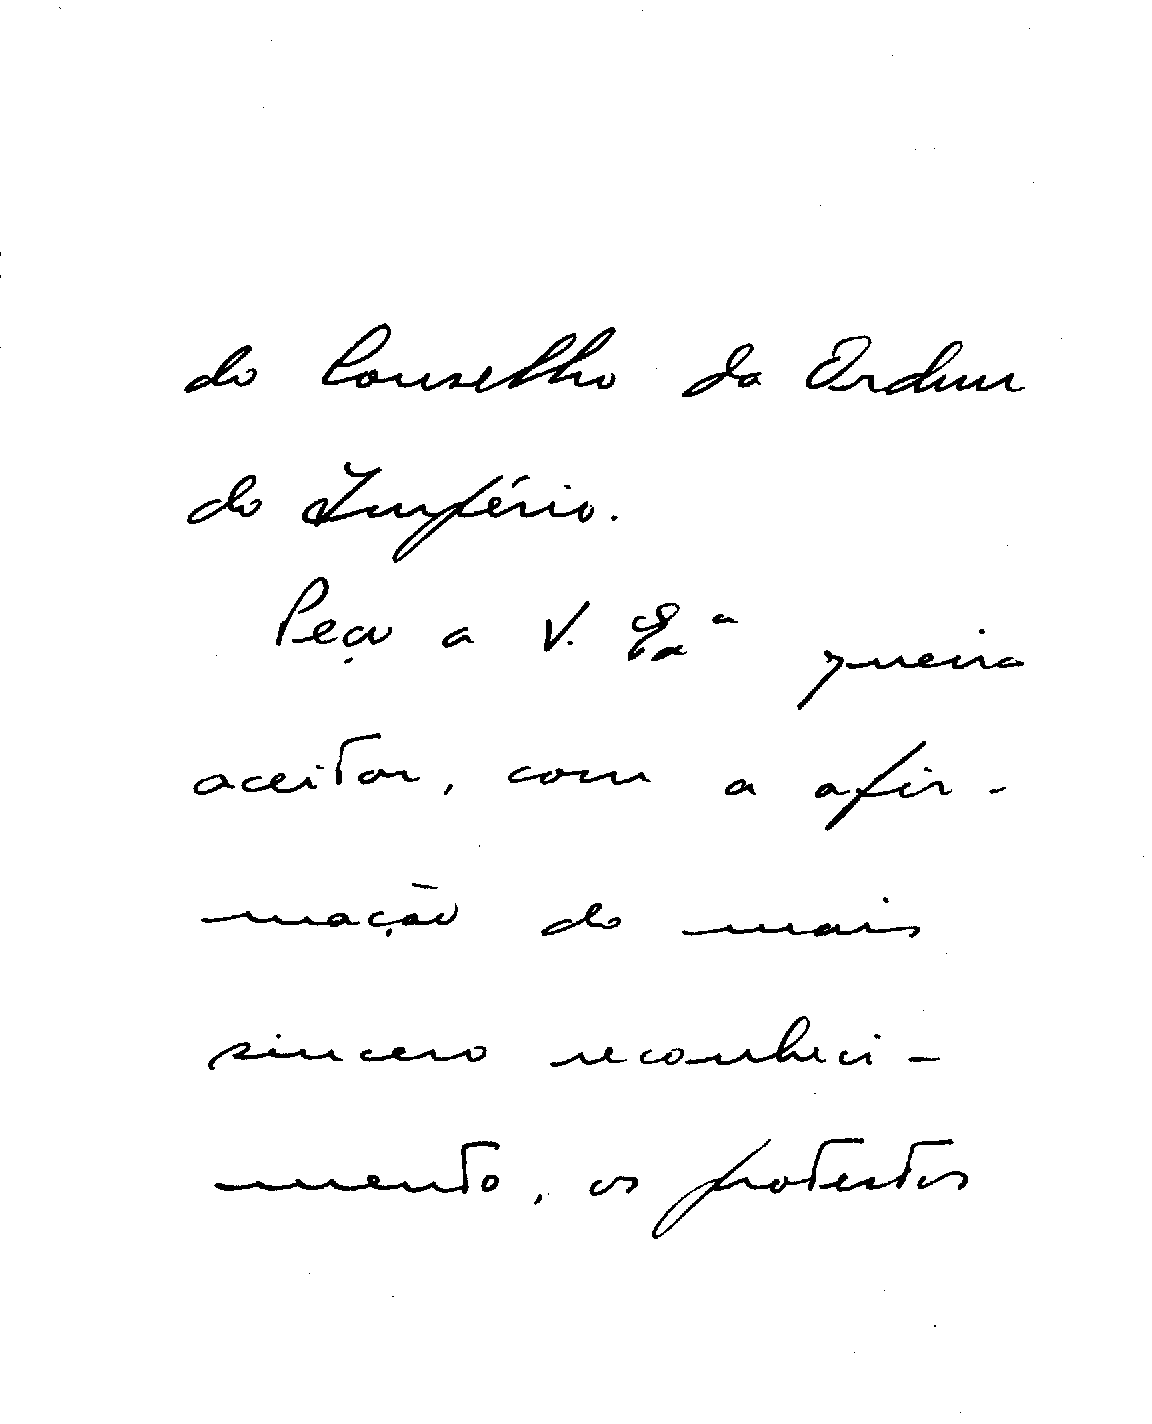 do Conselho da Ordem
do Império.
Peço a V. Exª queira
aceitar, com a afir-
mação do mais
sincero reconheci-
mento, os protestos